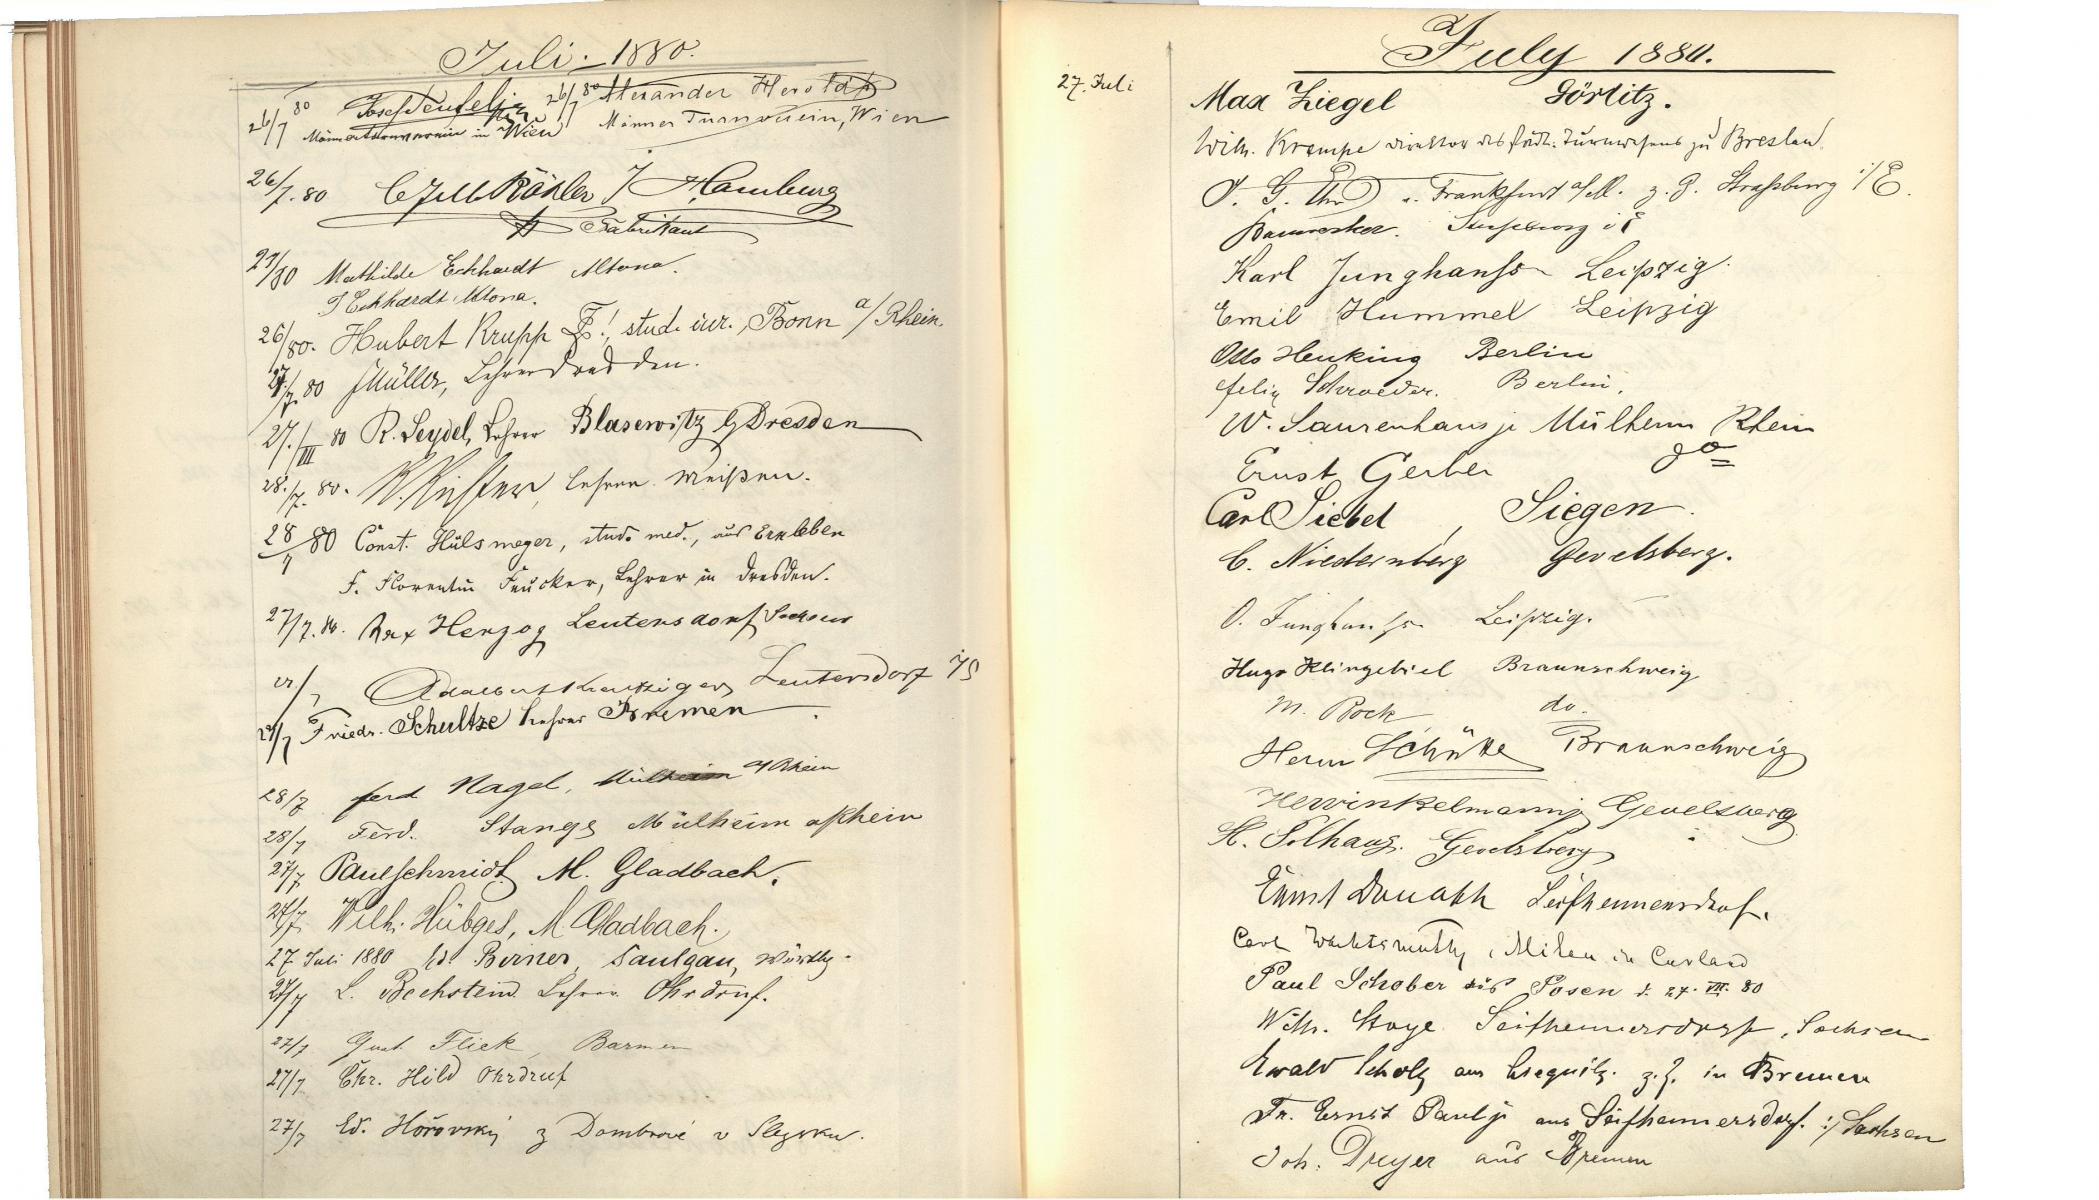 Juli. 1880.
26/7 80 Josef Teufelsjr. 26/7 80 Alexander Herold
Männerturnverein in Wien Männer Turnverein, Wien
26/7. 80 Köhler / Hamburg
Fabrikant
27/80 Mathilde Eckhardt Altona.
J Eckhardt Altona.
26/80. Hubert Krupp stud. iur., Bonn a/Rhein.
27./7. 80 Müller, Lehrer Dresden.
27./VII 80 R. Seydel, Lehrer Blasewitz b/Dresden
28./7. 80. Richter, Lehrer. Meißen.
28/7 80 Const. Hülsmeyer, stud. med., aus Erxleben
F. Florentin Lehrer in Dresden.
27/7. 80. Max Herzog Leutersdorf Sachsen
Leutersdorf i/S
27/7 Friedr. Schultze Lehrer Bremen
28/7 Ferd Nagel, Mülheim a/Rhein
28/7 Ferd. Stange Mülheim a/Rhein
27/7 Paul Schmidt M. Gladbach.
27/7. Wilh. Hübges, M. Gladbach.
27 Juli 1880 Birner, Saulgau, Württbg.
27/7 L. Bechstein Lehrer Ohrdruf.
27/7 Gust. Flick, Barmen
27/7 Chr. Hild Ohrdruf
27/7 Ed. Hořovský z Dombrové v Slezsku.
July 1880.
27. Juli
Max Ziegel Görlitz.
Wilh. Krampe Direktor des städt. Turnwesens zu Breslau.
J. G. Frankfurt a/M. z. Z. Straßburg i/E.
Straßburg i E
Karl Junghanss Leipzig.
Emil Hummel Leipzig
Otto Henking Berlin
Felix Schroeder. Berlin.
W. Saurenhaus jr Mülheim Rhein
Ernst Gerber do
Carl Siebel, Siegen.
C. Niedernberg Gevelsberg.
O. Junghanss. Leipzig.
Hugo Klingebiel Braunschweig
M. Bock do.
Herm Schütte Braunschweig
Gevelsberg
Gevelsberg
Ernst Donath Seifhennersdorf.
Carl Wachtsmuth, Mitau in Curland
Paul Schober aus Posen d. 27. VII. 80
Wilh. Stoye Seifhennersdorf, Sachsen
Ewald Scholz aus Liegnitz. z. Z. in Bremen
Fr. Ernst Paul jr aus Seifhennersdorf. i/Sachsen
Joh. Dreyer aus Bremen